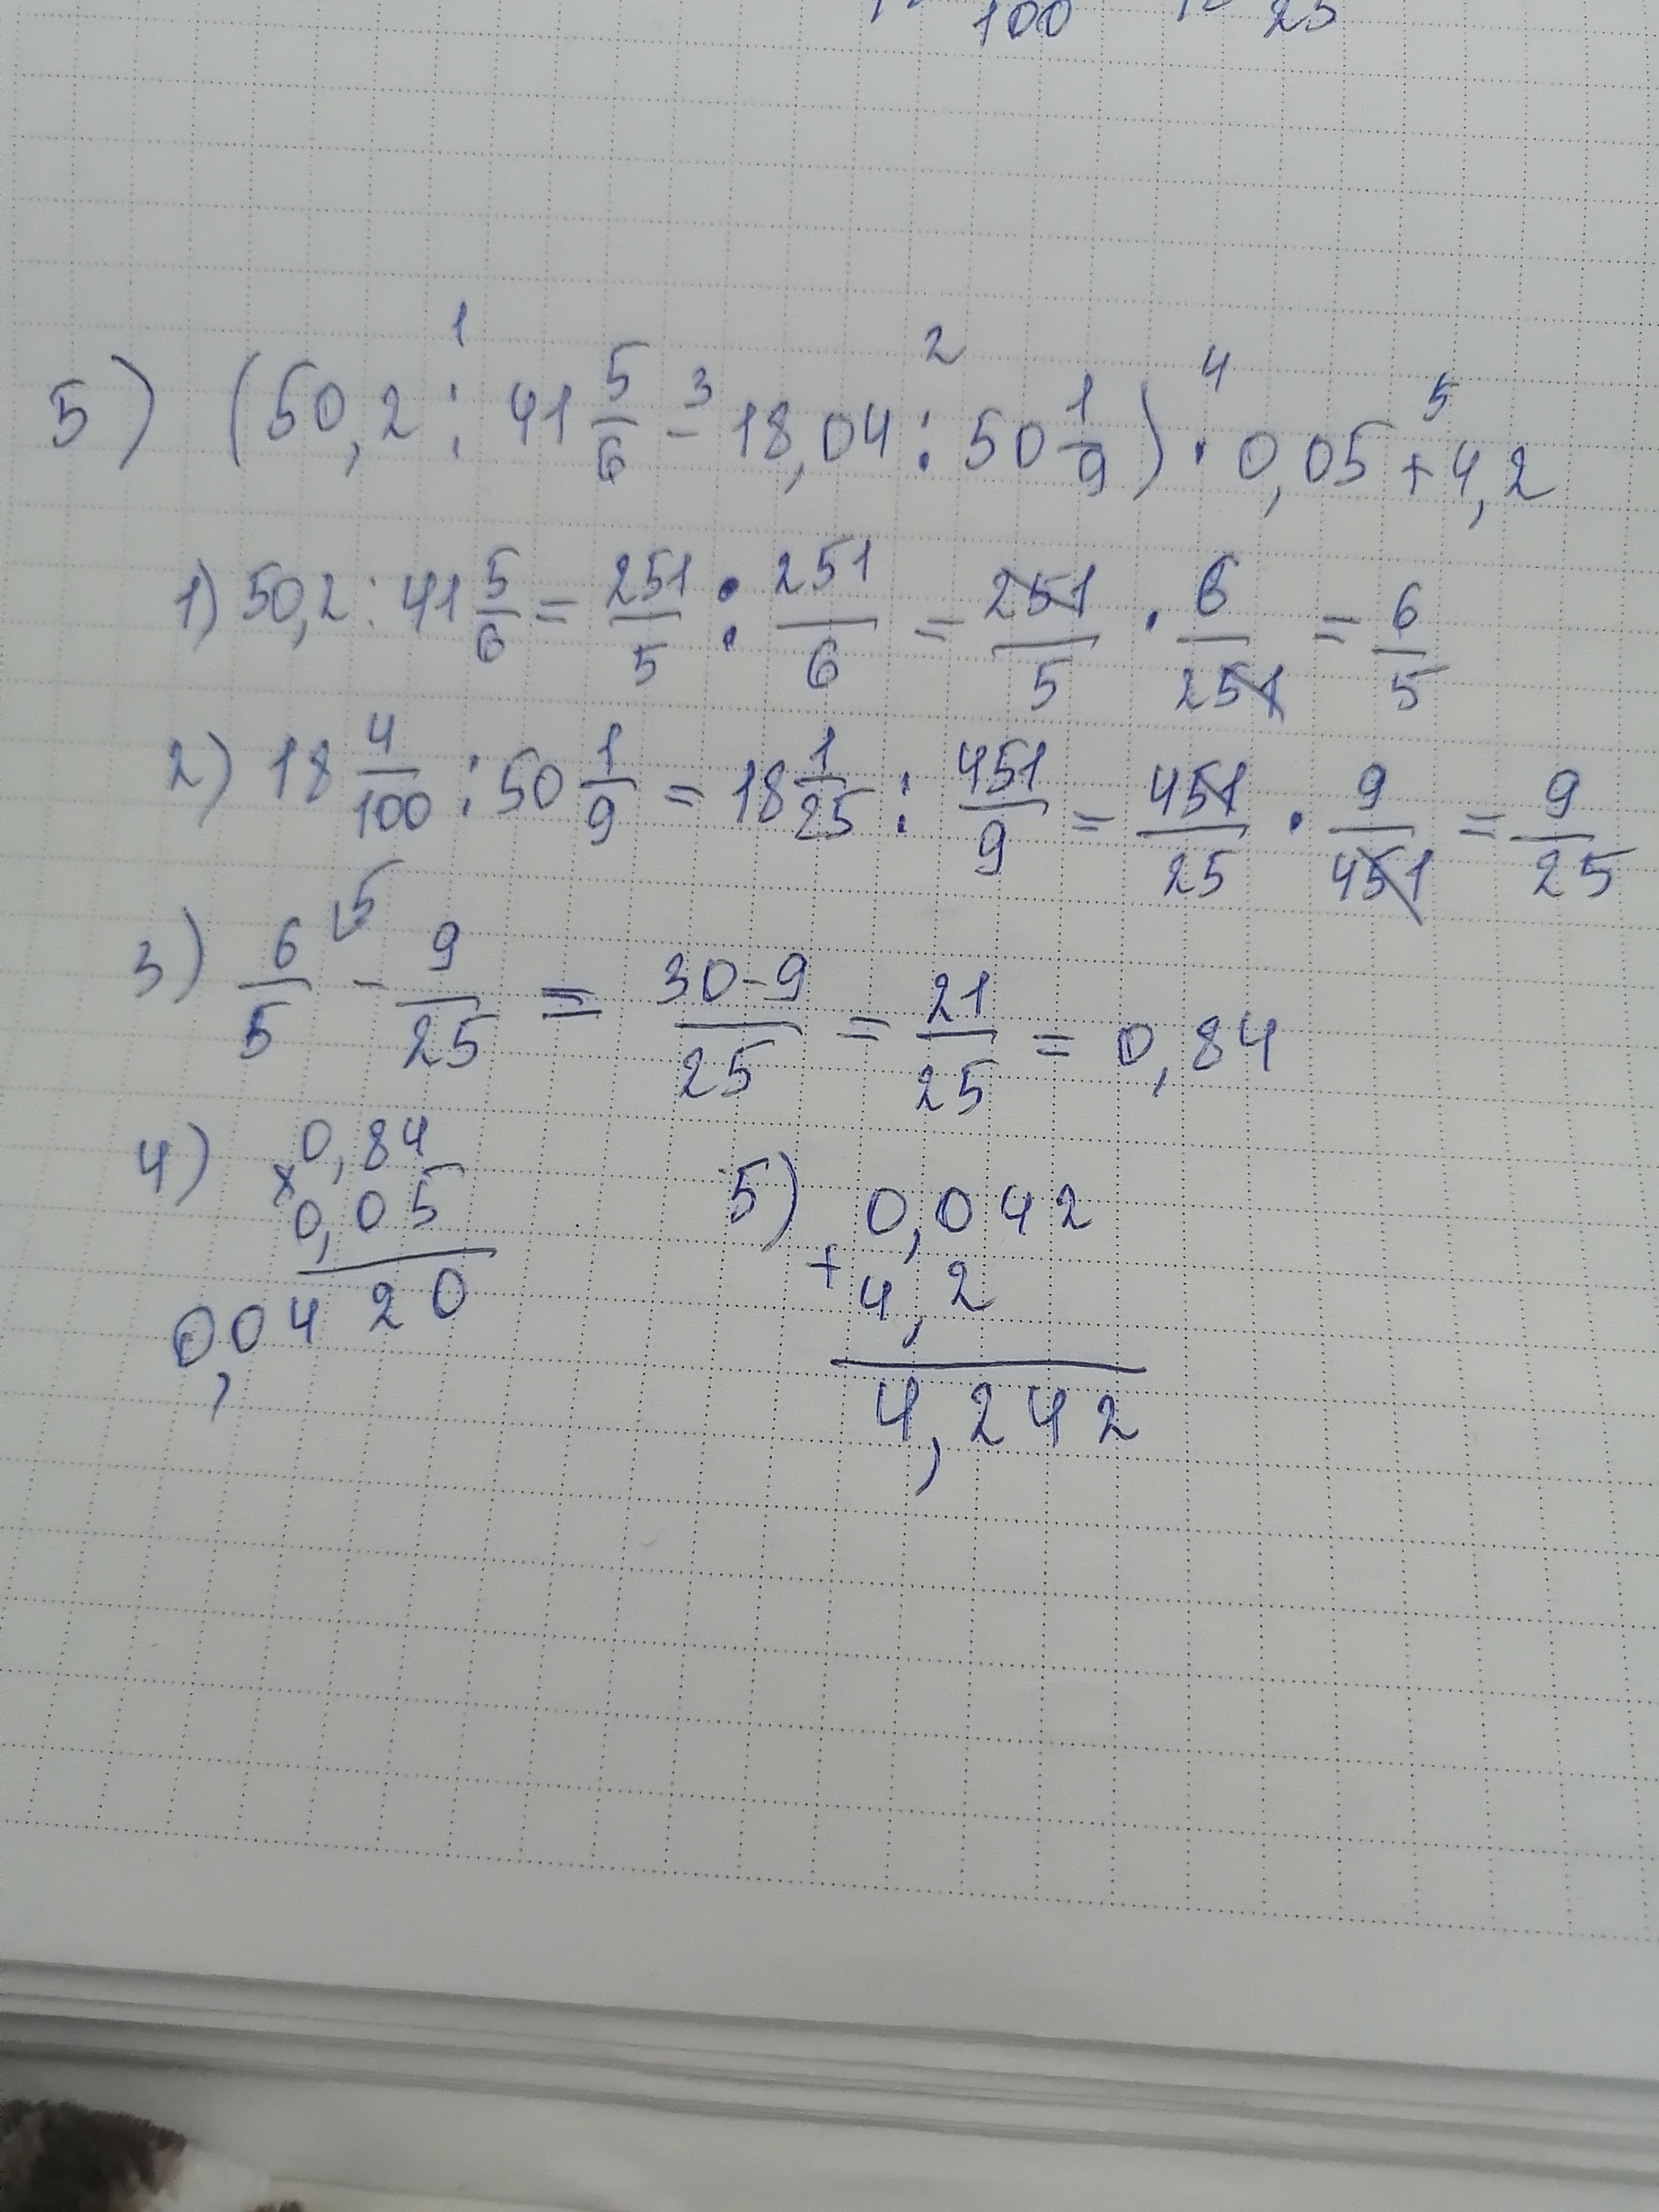 100 25
1 2 4 5
5) (50,2 : 41 5/6 -³ 18,04 : 50 1/9) · 0,05 + 4,2
1) 50,2 : 41 5/6 = 251/5 : 251/6 = 251/5 · 6/251 = 6/5
2) 18 4/100 : 50 1/9 = 18 1/25 : 451/9 = 451/25 · 9/451 = 9/25
3) 6/5 ⌊5 - 9/25 = 30-9/25 = 21/25 = 0,84
4) 0,84
x 0,05
0,0420
5) 0,042
+ 4,2
4,242